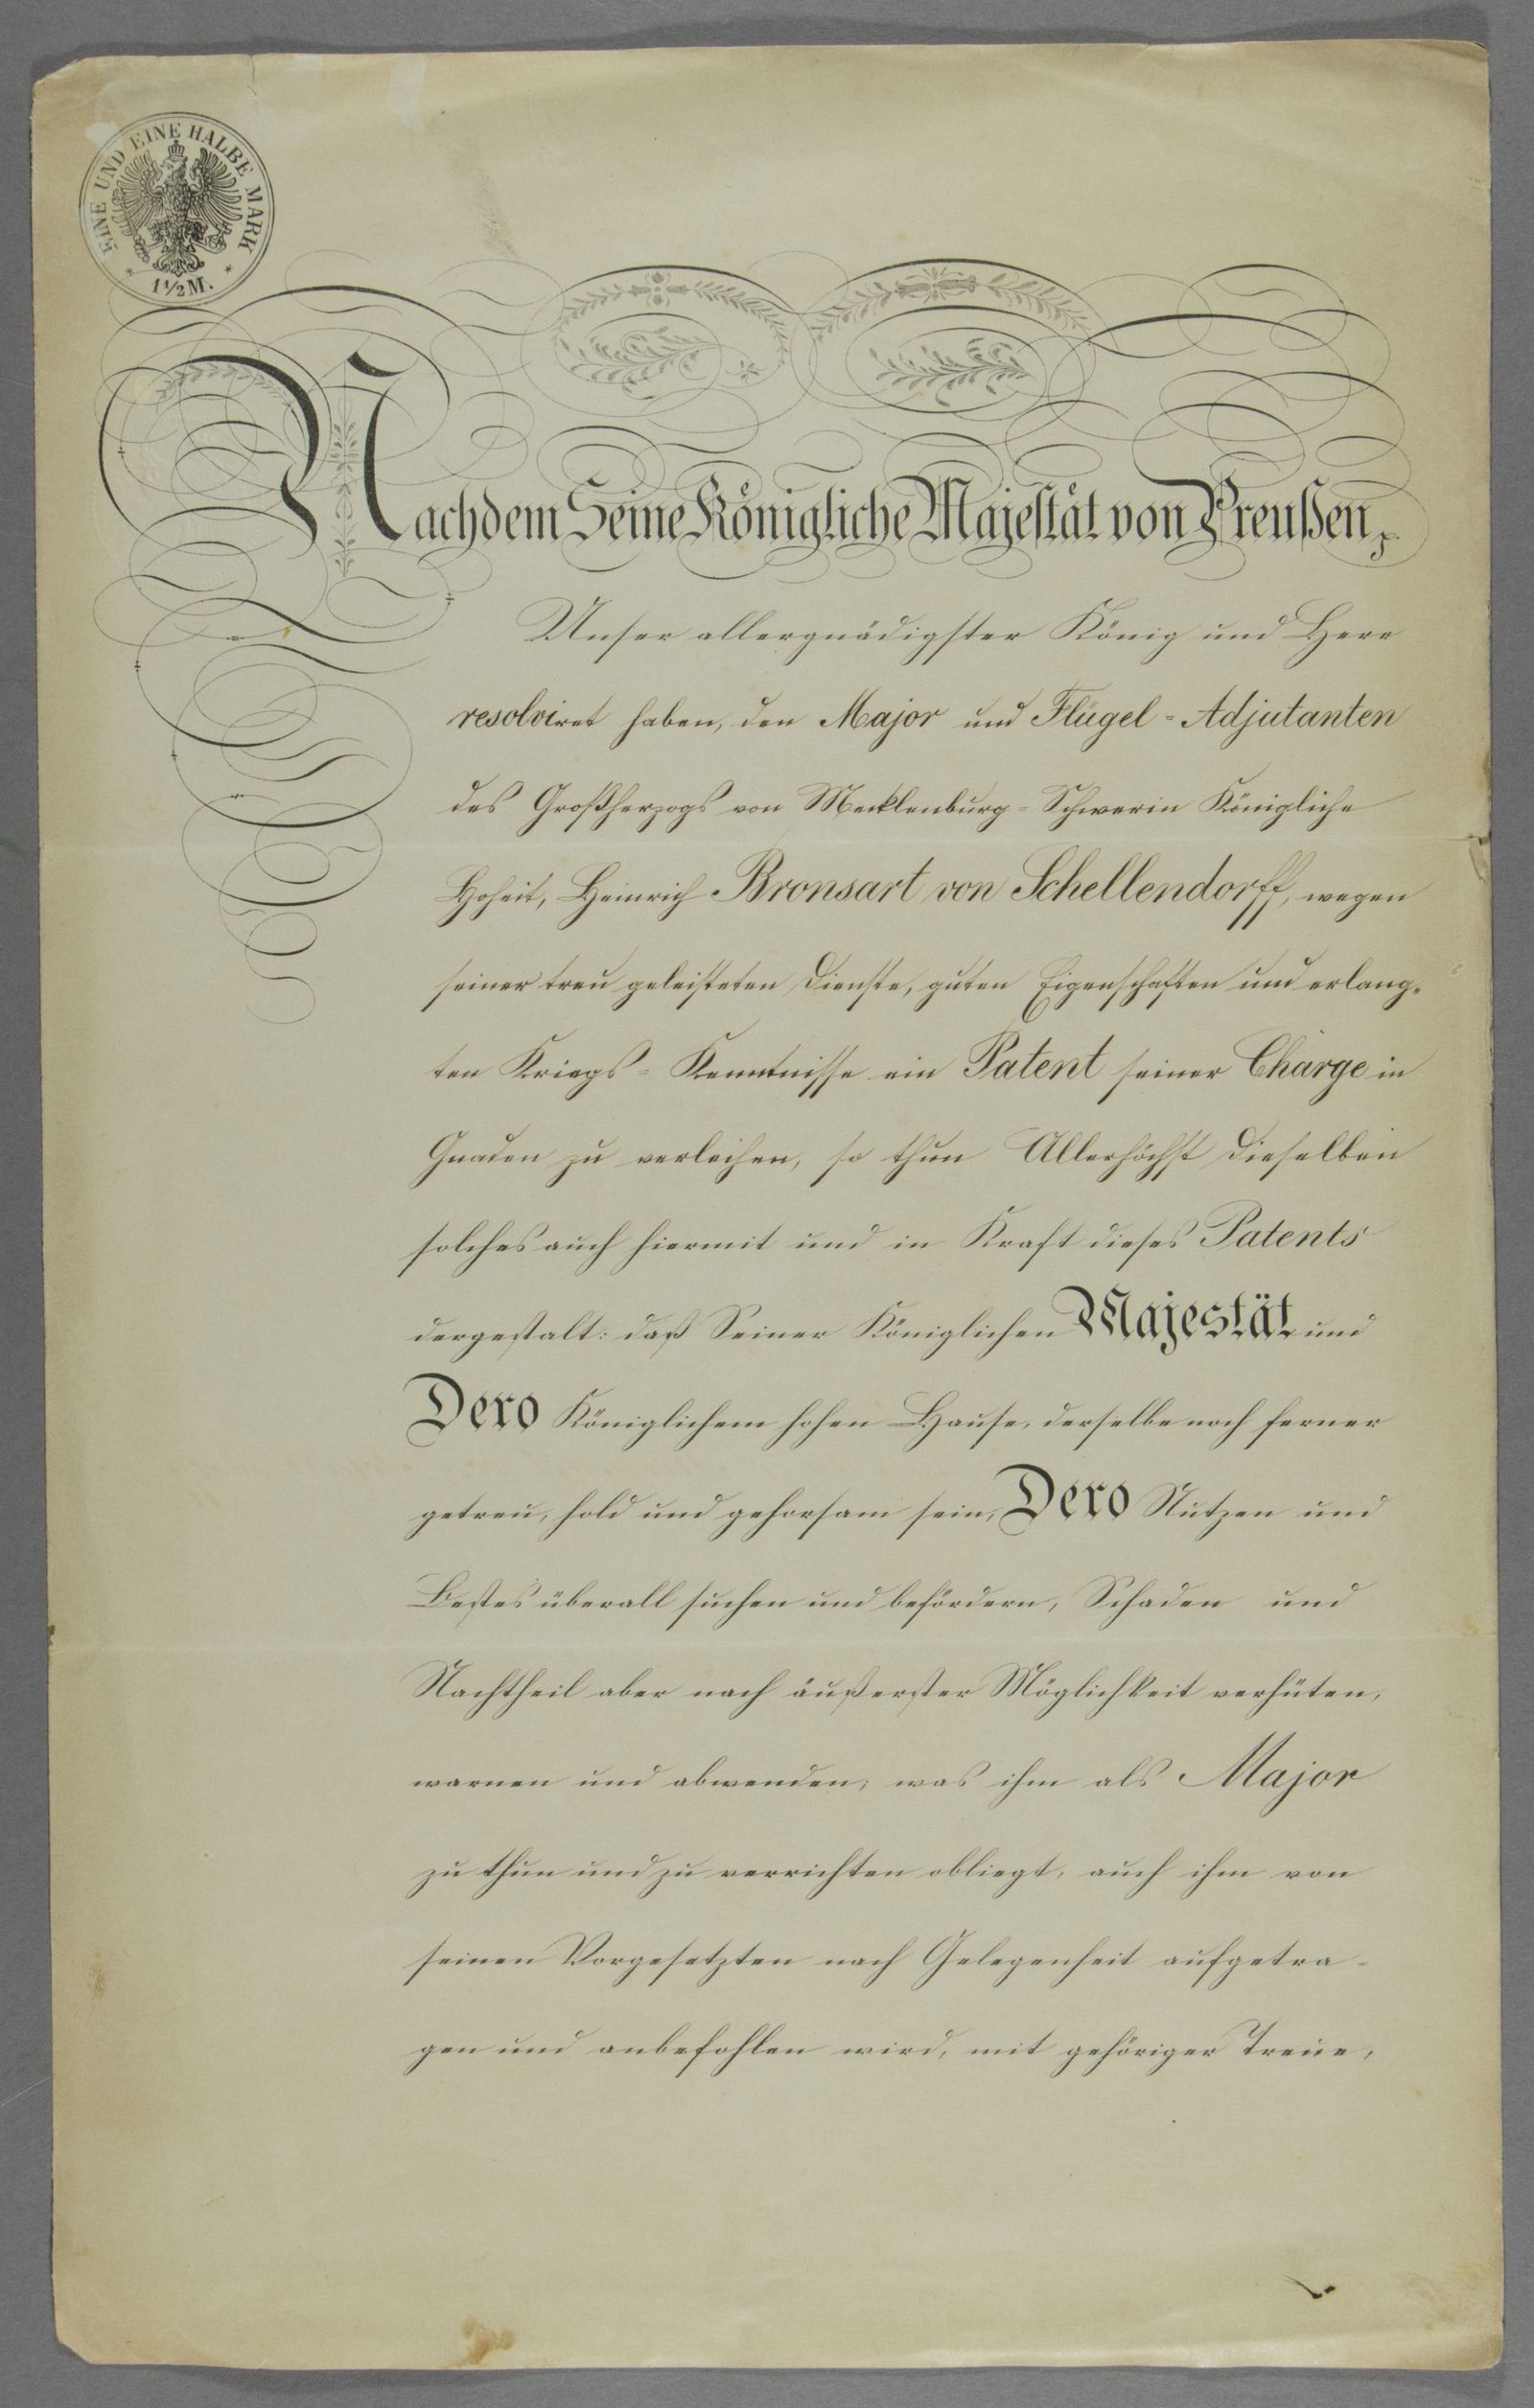 EINE UND EINE HALBE MARK
1 1/2 M.
Nachdem Seine Königliche Majestät von Preußen,
Unser allergnädigster König und Herr
resolviret haben, den Major und Flügel-Adjutanten
des Großherzogs von Mecklenburg-Schwerin Königliche
Hoheit, Heinrich Bronsart von Schellendorff, wegen
seiner treu geleisteten Dienste, guten Eigenschaften und erlang-
ten Kriegs-Kenntnisse ein Patent seiner Charge in
Gnaden zu verleihen, so thun Allerhöchst Dieselben
solches auch hiermit und in Kraft dieses Patents
dergestalt: daß Seiner Königlichen Majestät und
Dero Königlichem hohen Hause, derselbe noch ferner
getreu, hold und gehorsam sein, Dero Nutzen und
Bestes überall suchen und befördern, Schaden und
Nachtheil aber nach äußerster Möglichkeit verhüten,
warnen und abwenden, was ihm als Major
zu thun und zu verrichten obliegt, auch ihm von
seinen Vorgesetzten nach Gelegenheit aufgetra-
gen und anbefohlen wird, mit gehöriger Treue,